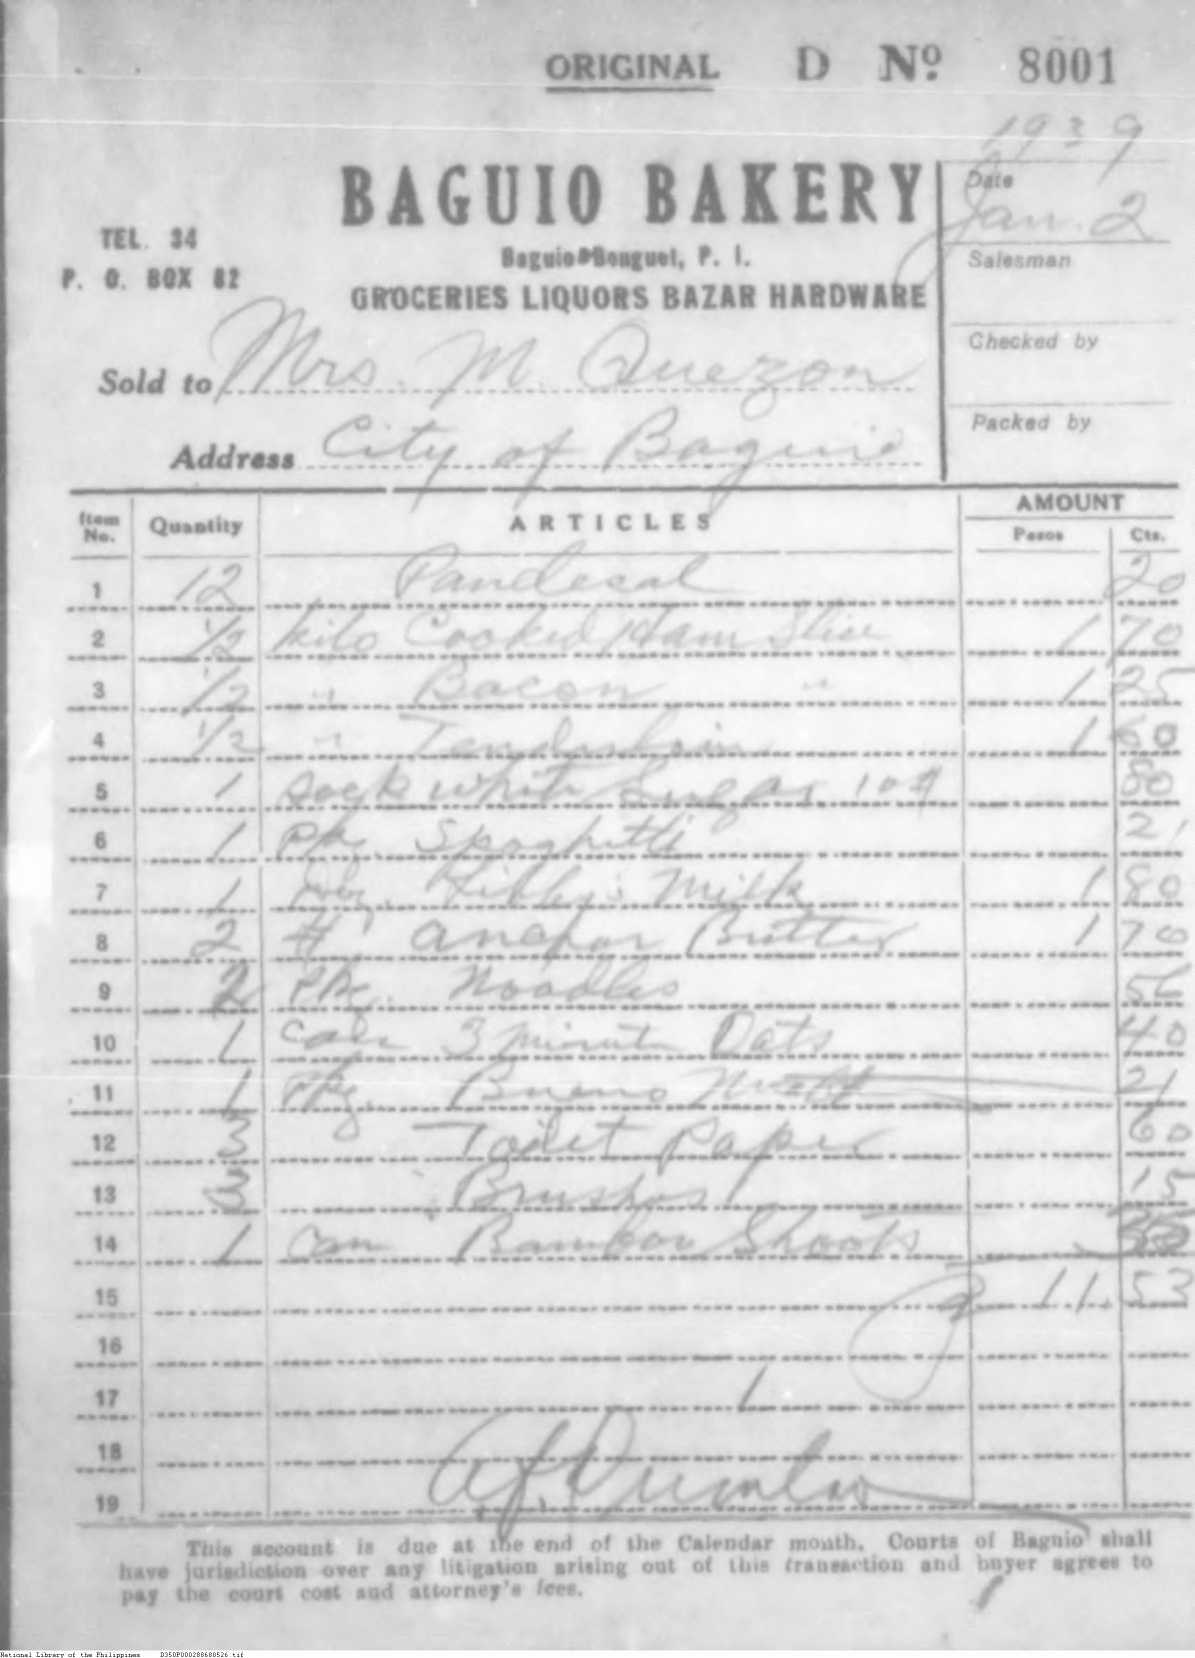 ORIGINAL D Nº 8001
1939
BAGUIO BAKERY
Date
Jan. 2
TEL. 34
Baguio Benguet, P. I.
Salesman
P. O. BOX 82
GROCERIES LIQUORS BAZAR HARDWARE
Checked by
Sold to Mrs. M. Quezon
Packed by
Address City of Baguio
Item No. Quantity ARTICLES AMOUNT
Pesos Cts.
1 12 Pandesal 20
2 1/2 kilo Cooked Ham Slice 1 70
3 1/2 " Bacon " 1 25
4 1/2 " Tenderloin 1 60
5 1 sack white Sugar 10# 80
6 1 pkg. Spaghetti 21
7 1 Libby's Milk 1 80
8 2 # Anchor Butter 1 70
9 2 Pkg. Noodles 56
10 1 3 minute Oats 40
11 1 Pkg. Bueno 21
12 3 Toilet Paper 60
13 3 Brushes 15
14 1 can Bamboo Shoots
15 11.53
16
17
18
19
This account is due at the end of the Calendar month. Courts of Baguio shall
have jurisdiction over any litigation arising out of this transaction and buyer agrees to
pay the court cost and attorney's fees.
National Library of the Philippines D350P000288680526.tif